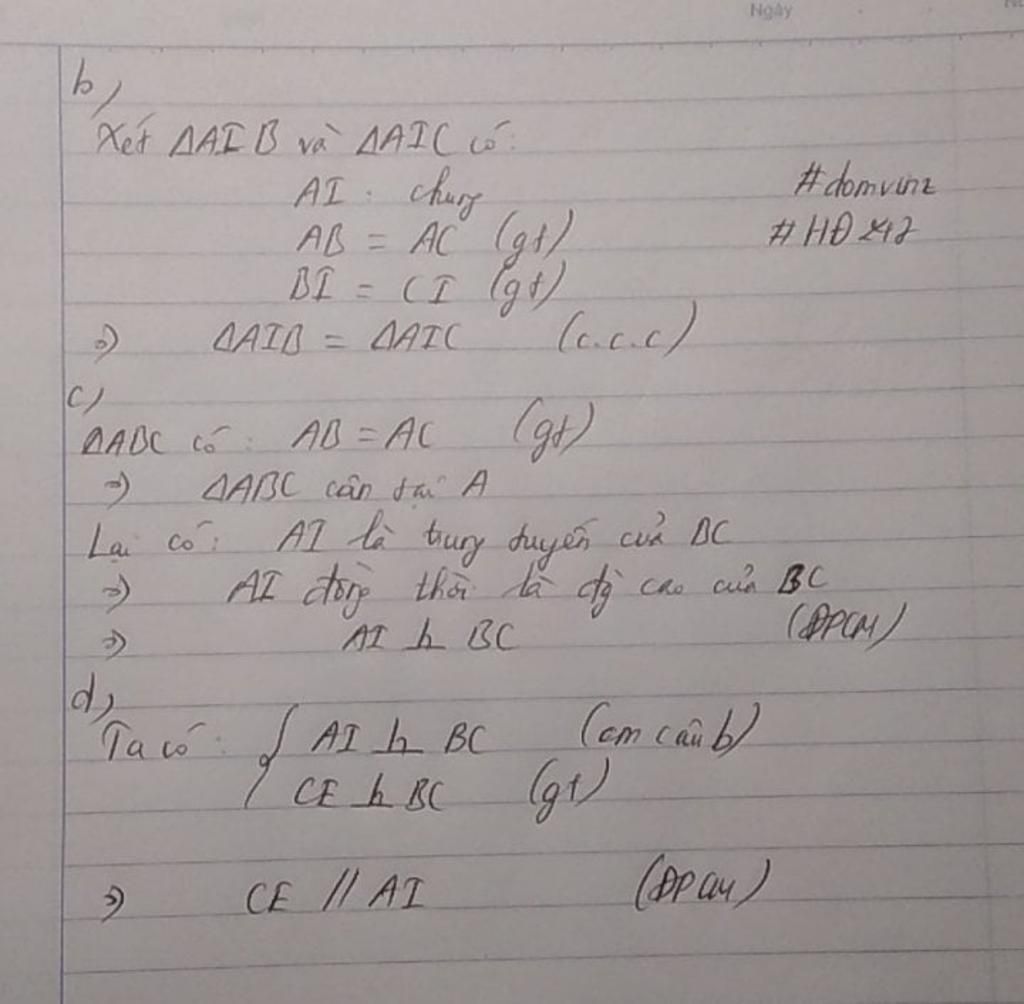 Ngày
b)
Xét ΔAIB và ΔAIC có:
AI : chung
#domvinz
AB = AC (gt)
#HĐ
BI = CI (gt)
=> ΔAIB = ΔAIC (c.c.c)
c)
ΔABC có: AB = AC (gt)
=> ΔABC cân tại A
Lại có: AI là trung tuyến của BC
=> AI đồng thời là đg cao của BC
=> AI ⊥ BC (ĐPCM)
d)
Ta có: { AI ⊥ BC (cm câu b)
CE ⊥ BC (gt)
=> CE // AI (ĐPCM)